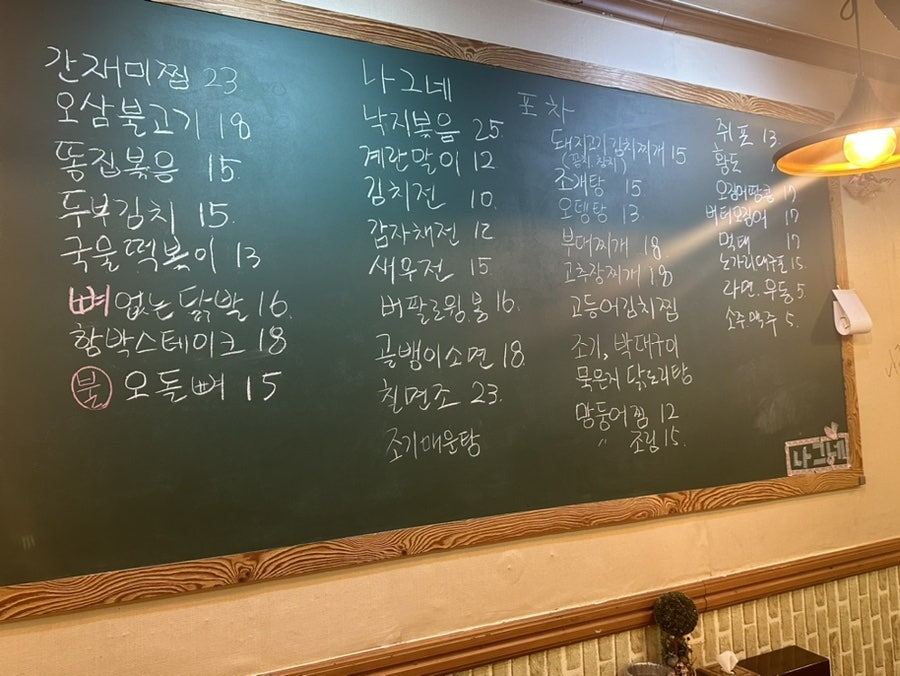 간재미찜 23
오삼불고기 18
똥집볶음 15.
두부김치 15.
국물떡볶이 13
뼈없는닭발 16.
함박스테이크 18
불 오돌뼈 15
나그네
낙지볶음 25
계란말이 12
김치전 10.
감자채전 12
새우전 15.
버팔로윙,봉 16.
골뱅이소면 18
칠면조 23.
조기매운탕
포차
돼지고기김치찌개 15
(꽁치,참치)
조개탕 15.
오뎅탕 13.
부대찌개 18.
고추장찌개 18
고등어김치찜
조기, 박대구이
묵은지 닭도리탕
망둥어찜 12
〃 조림 15.
쥐포 13.
황도
오징어땅콩 17
버터오징어 17
먹태 17
노가리대구포 15.
라면.우동 5
소주맥주 5.
나그네